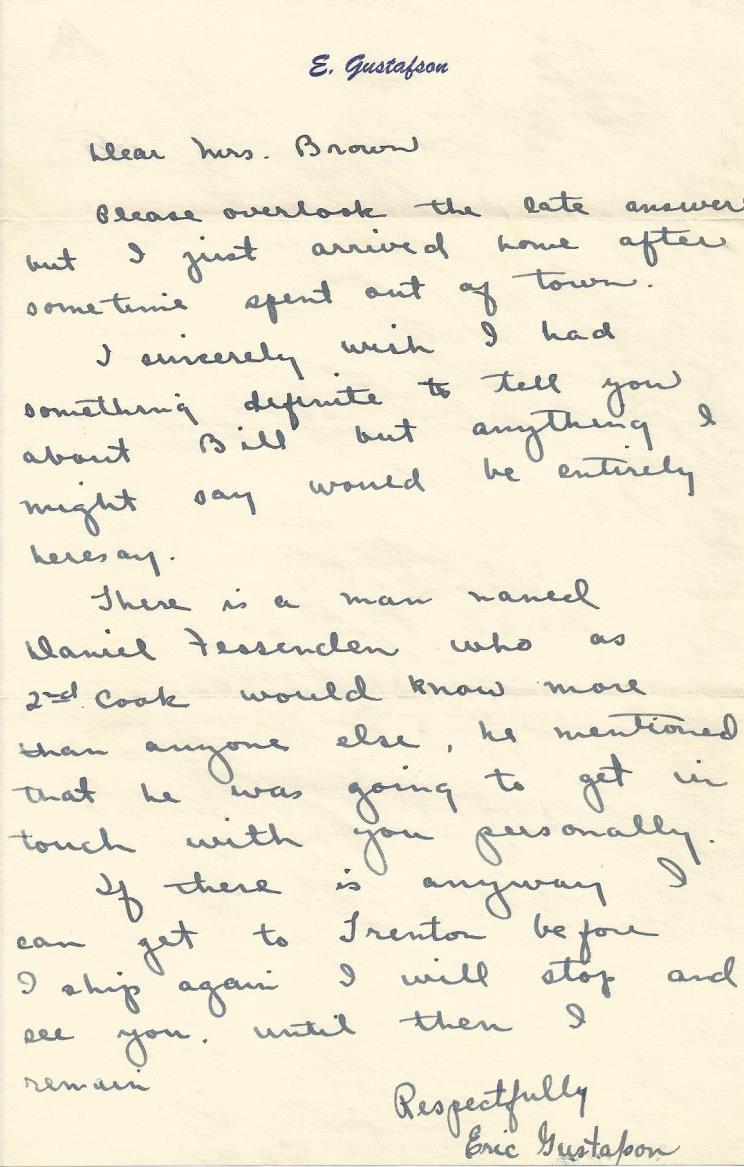 E. Gustafson
Dear Mrs. Brown
Please overlook the late answer
but I just arrived home after
sometime spent out of town.
I sincerely wish I had
something definite to tell you
about Bill but anything I
might say would be entirely
heresay.
There is a man named
Daniel Fessenden who as
2nd cook would know more
than anyone else, he mentioned
that he was going to get in
touch with you personally.
If there is anyway I
can get to Trenton before
I ship again I will stop and
see you. until then I
remain
Respectfully
Eric Gustafson